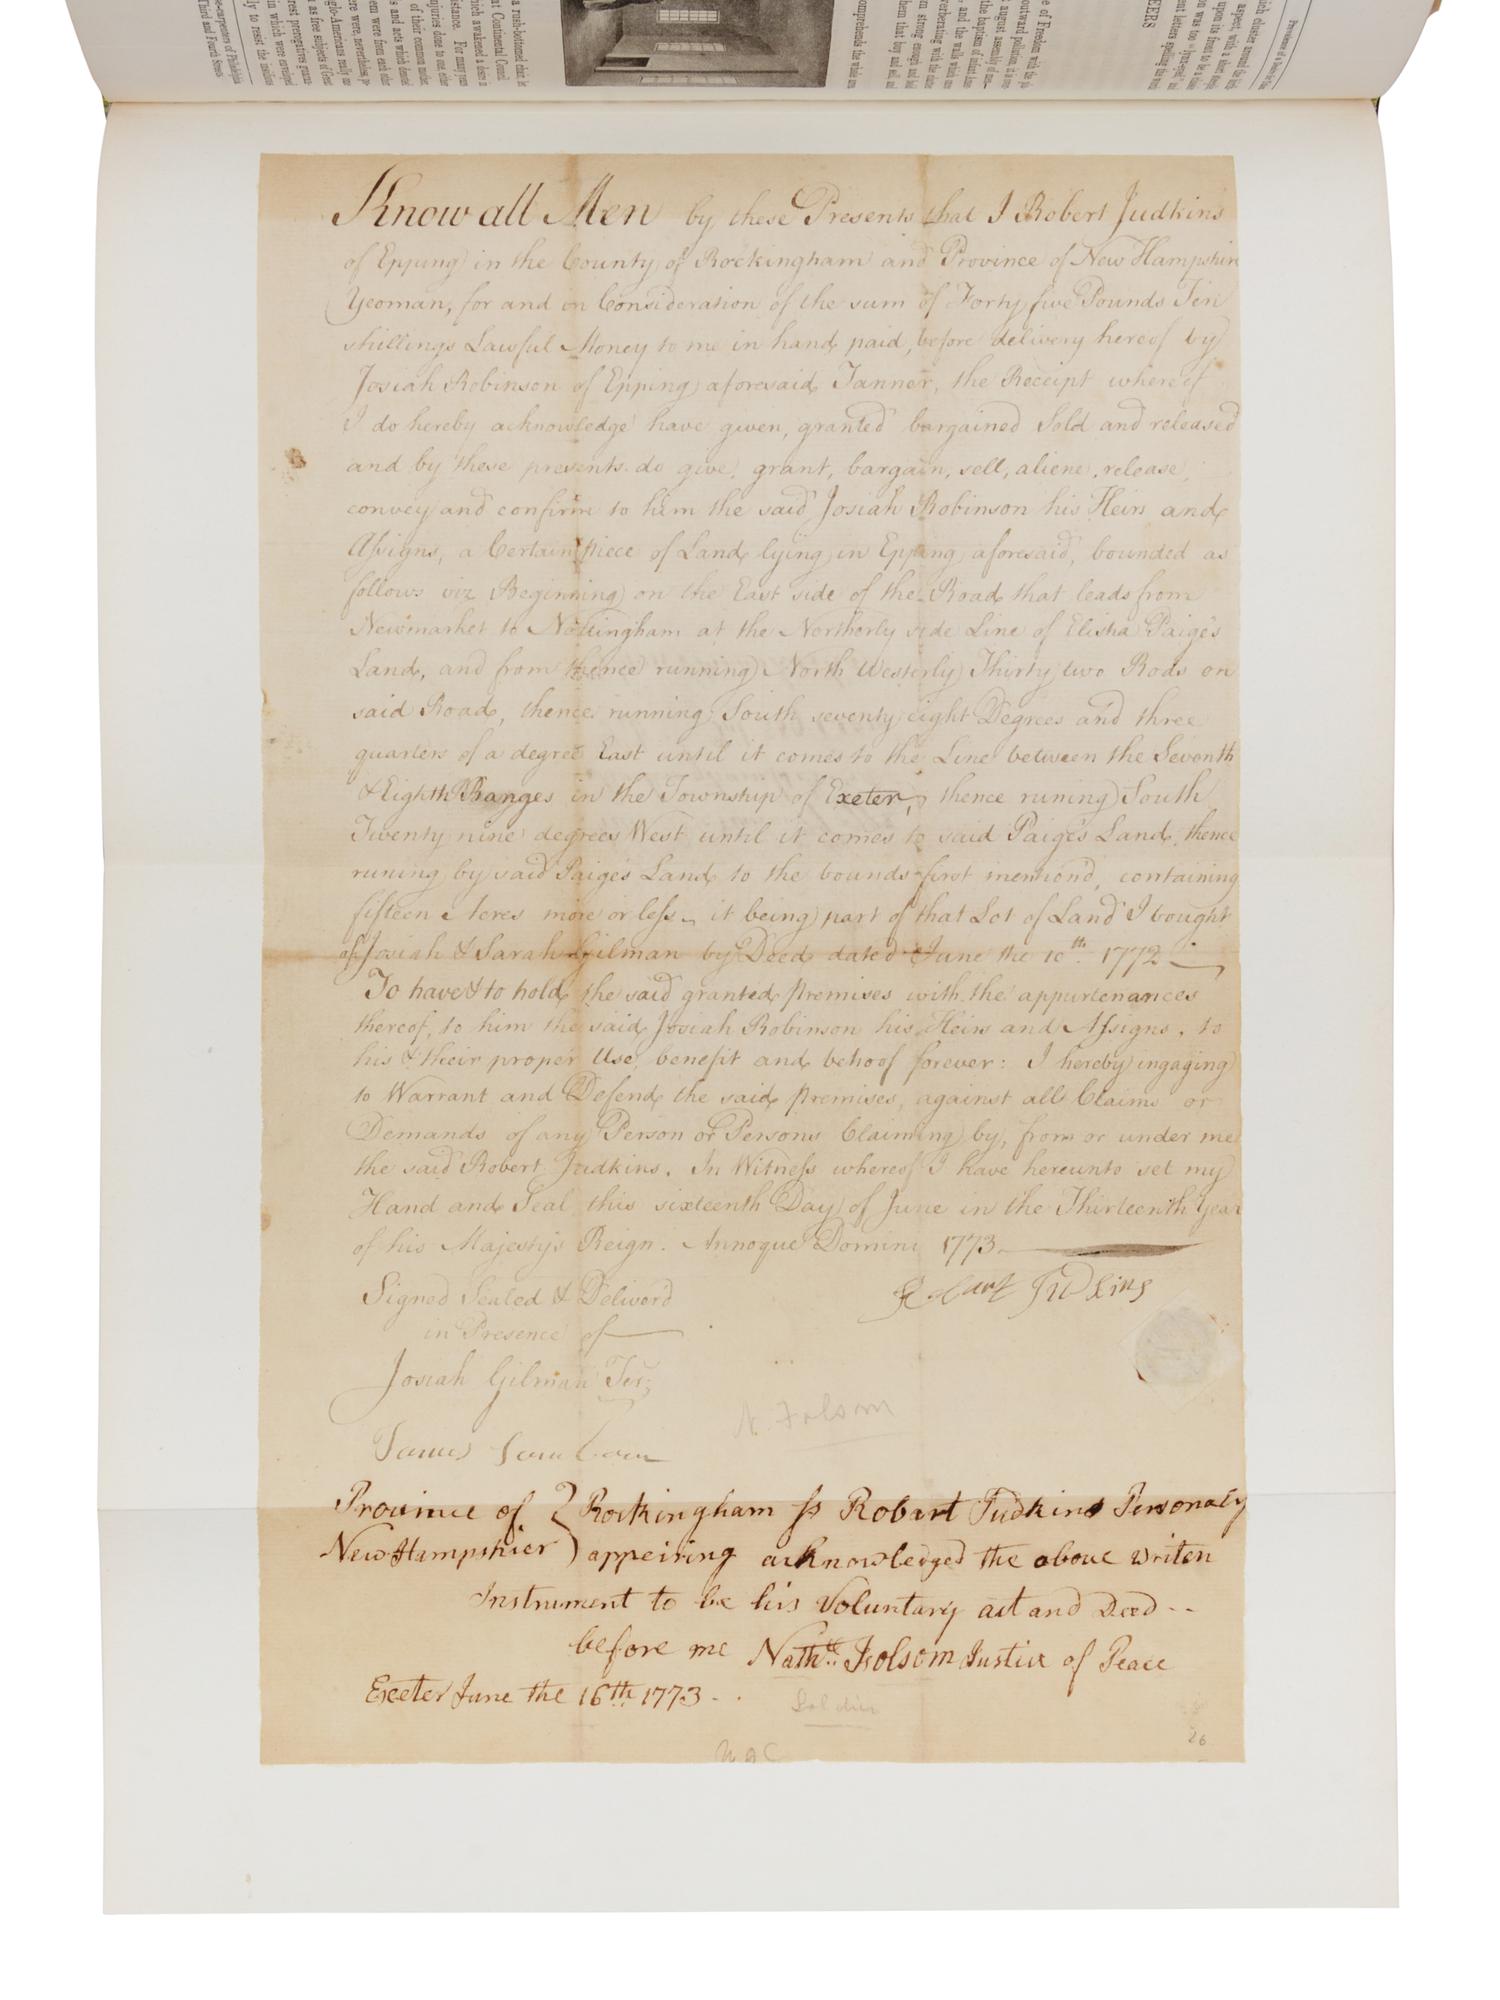 Know all Men by these Presents that I Robert Judkins
of Epping in the County of Rockingham and Province of New Hampshire
Yeoman, for and in Consideration of the sum of Forty five Pounds Ten
shillings Lawful Money to me in hand paid, before delivery hereof by
Josiah Robinson of Epping aforesaid Tanner, the Receipt whereof
I do hereby acknowledge have given, granted bargained Sold and released
and by these presents do give, grant, bargain, sell, aliene, release,
convey and confirm to him the said Josiah Robinson his Heirs and
Assigns, a Certain piece of Land lying in Epping aforesaid, bounded as
follows viz Beginning on the East side of the Road that leads from
Newmarket to Nottingham at the Northerly side Line of Elisha Paige's
Land, and from thence running North Westerly Thirty two Rods on
said Road, thence running South seventy eight Degrees and three
quarters of a degree East until it comes to the Line between the Seventh
& Eighth Ranges in the Township of Exeter, thence runing South
Twenty nine degrees West until it comes to said Paige's Land, thence
runing by said Paige's Land to the bounds first mention'd, containing
fifteen Acres more or less, it being part of that Lot of Land I bought
of Josiah & Sarah Gilman by Deed dated June the 10th 1772
To have & to hold the said granted premises with the appurtenances
thereof, to him the said Josiah Robinson his Heirs and Assigns, to
his & their proper Use, benefit and behoof forever: I hereby ingaging
to Warrant and Defend the said premises, against all Claims or
Demands of any Person or Persons Claiming by, from or under me
the said Robert Judkins. In Witness whereof I have hereunto set my
Hand and Seal this sixteenth Day of June in the Thirteenth Year
of his Majesty's Reign. Annoque Domini 1773.
Robart Judkins
Signed Sealed & Deliver'd
in Presence of
Josiah Gilman Ter;
N. Folsom
James
Province of } Rockingham ss Robart Judkins Personaly
New Hampshier ) appeiring acknowledged the above writen
Instrument to be his Voluntary act and Deed --
before me Nathll Folsom Justice of Peace
Exeter June the 16th 1773 -
Soldier
26